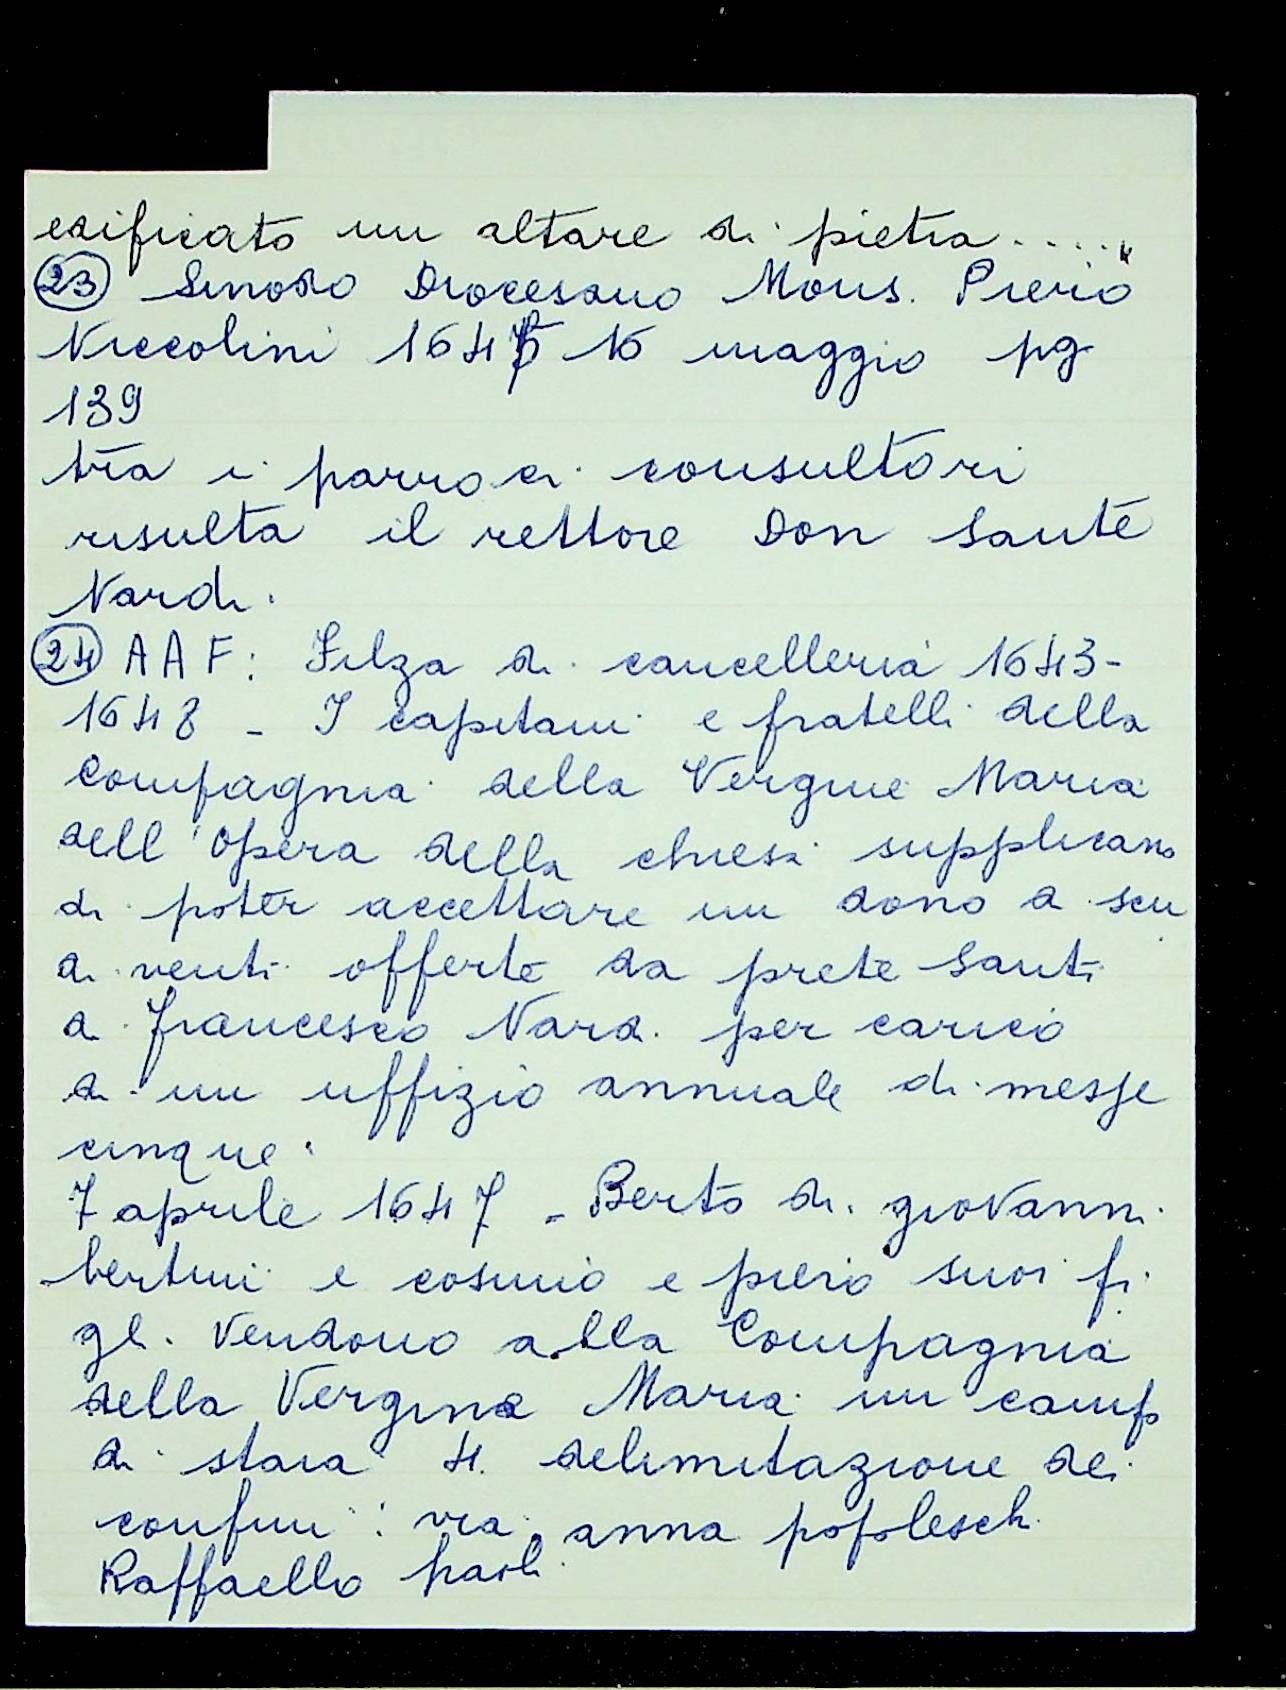 edificato un altare di pietra.....
23 Sinodo Diocesano Mons. Piero
Niccolini 164 16 maggio pg
139
tra i parroci consultori
risulta il rettore Don Sante
Nardi.
24 AAF: Filza di cancelleria 1643-
1648 - I capitani e fratelli della
Compagnia della Vergine Maria
dell'opera della chiesa supplicano
di poter accettare un dono di scu
di venti offerte da prete Santi
di Francesco Nardi per carico
di un uffizio annuale di messe
cinque.
7 aprile 1647 - Berto di giovanni
bertini e cosimo e piero suoi fi
gli vendono alla Compagnia
della Vergine Maria un campo
di staia 4. delimitazione dei
confini: via, anna popoleschi
Raffaello paoli